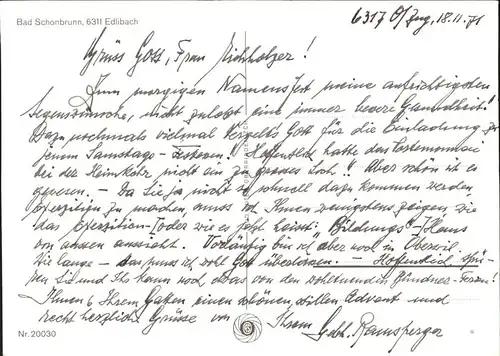 Bad Schonbrunn, 6311 Edlibach
6317 O/Zug, 18.11.71
Grüss Gott, Frau Eichholzer!
Zum morgigen Namensfest meine aufrichtigsten
Segenswünsche, nicht zuletzt eine immer bessere Gesundheit!
Dazu nochmals vielmal Vergelt's Gott für die Einladung zu
jenem Samstags-Essen! Hoffentlich hatte das Portemonnaie
bei der Heimkehr nicht ein zu grosses Loch! Aber schön ist es
gewesen. – Da Sie ja nicht so schnell dazu kommen werden
Exerzitien zu machen, muss ich Ihnen wenigstens zeigen wie
das Exerzitien- (oder wie es jetzt heisst: "Bildungs"-)Haus
von aussen aussieht. Vorläufig bin ich aber noch in Oberwil.
Wie lange – das muss ich wohl Gott überlassen. – Hoffentlich spü-
ren Sie und Ihr Mann noch etwas von den wohltuenden Bündner-Ferien!
Ihnen & Ihrem Gatten einen schönen, stillen Advent und
recht herzliche Grüsse von Ihrem
Nr. 20030